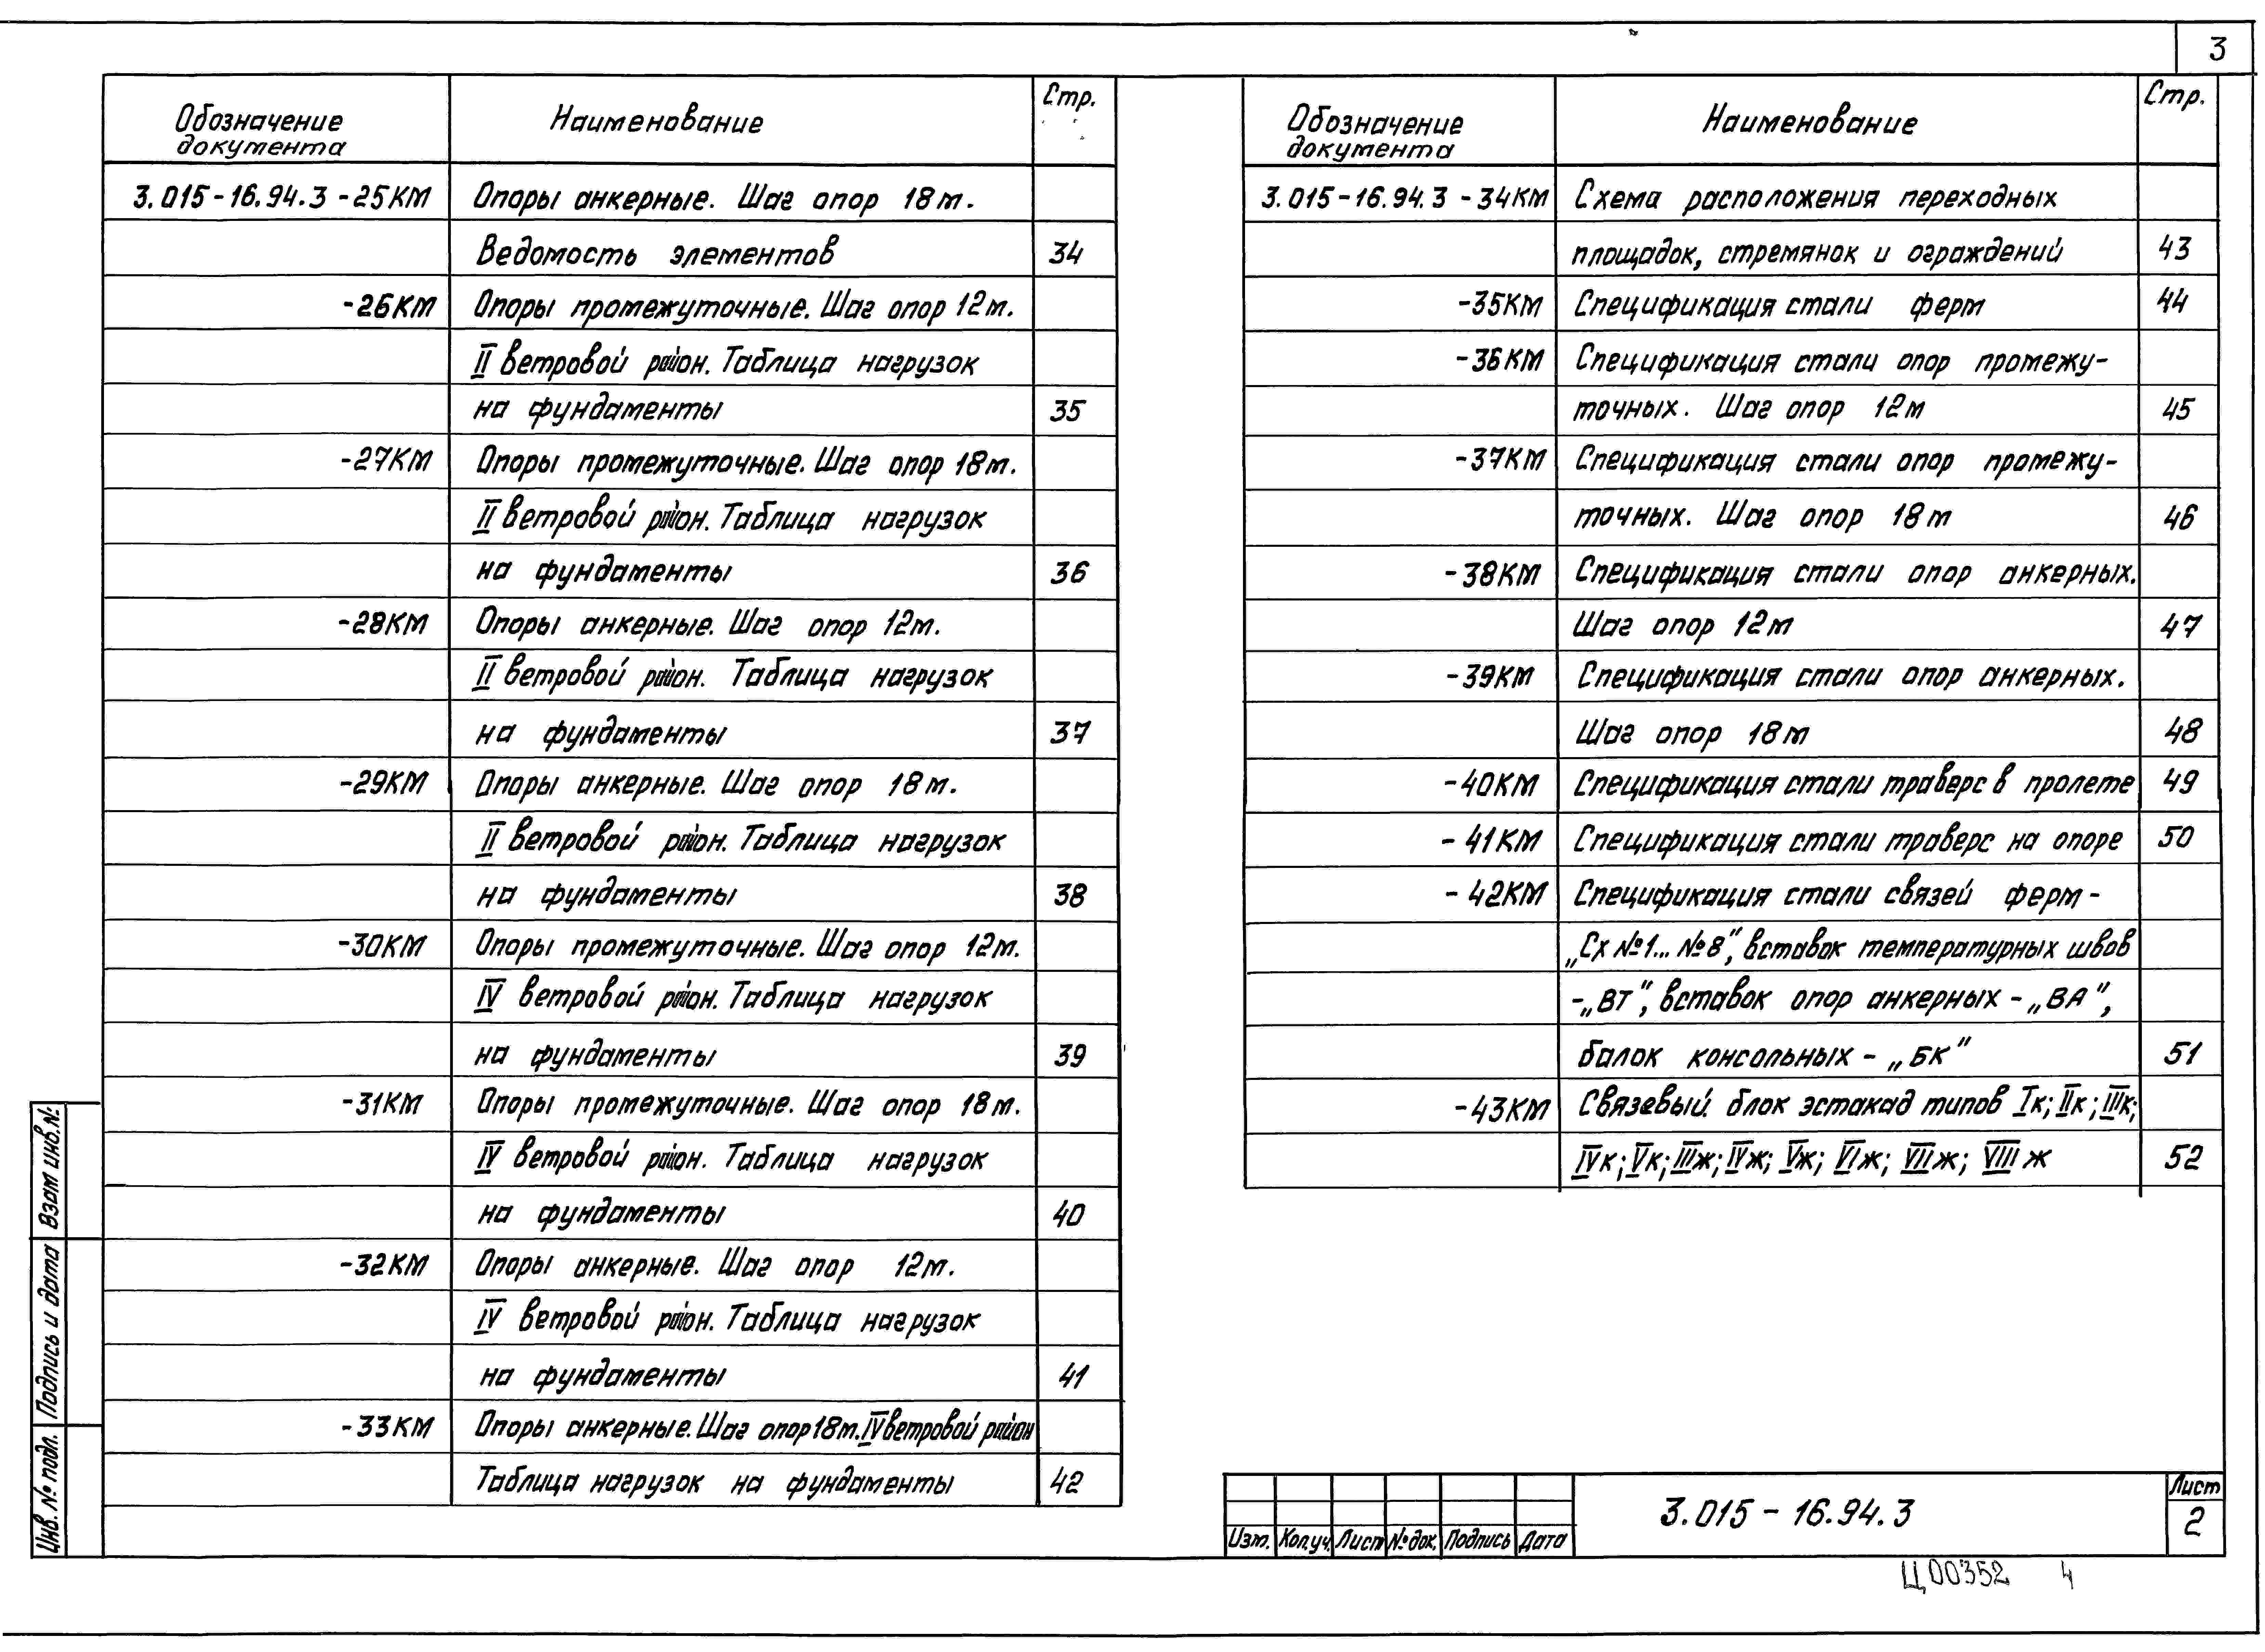 3
Обозначение документа Наименование Стр.
3.015-16.94.3-25КМ Опоры анкерные. Шаг опор 18м.
Ведомость элементов 34
-26КМ Опоры промежуточные. Шаг опор 12м.
II ветровой район. Таблица нагрузок
на фундаменты 35
-27КМ Опоры промежуточные. Шаг опор 18м.
II ветровой район. Таблица нагрузок
на фундаменты 36
-28КМ Опоры анкерные. Шаг опор 12м.
II ветровой район. Таблица нагрузок
на фундаменты 37
-29КМ Опоры анкерные. Шаг опор 18м.
II ветровой район. Таблица нагрузок
на фундаменты 38
-30КМ Опоры промежуточные. Шаг опор 12м.
IV ветровой район. Таблица нагрузок
на фундаменты 39
-31КМ Опоры промежуточные. Шаг опор 18м.
IV ветровой район. Таблица нагрузок
на фундаменты 40
-32КМ Опоры анкерные. Шаг опор 12м.
IV ветровой район. Таблица нагрузок
на фундаменты 41
-33КМ Опоры анкерные. Шаг опор 18м. IV ветровой район
Таблица нагрузок на фундаменты 42
Обозначение документа Наименование Стр.
3.015-16.94.3-34КМ Схема расположения переходных
площадок, стремянок и ограждений 43
-35КМ Спецификация стали ферм 44
-36КМ Спецификация стали опор промежу-
точных. Шаг опор 12м 45
-37КМ Спецификация стали опор промежу-
точных. Шаг опор 18м 46
-38КМ Спецификация стали опор анкерных.
Шаг опор 12м 47
-39КМ Спецификация стали опор анкерных.
Шаг опор 18м 48
-40КМ Спецификация стали траверс в пролете 49
-41КМ Спецификация стали траверс на опоре 50
-42КМ Спецификация стали связей ферм -
„Сх №1... №8", вставок температурных швов
-„ВТ", вставок опор анкерных - „ВА",
балок консольных - „БК" 51
-43КМ Связевый блок эстакад типов Iк; IIк; IIIк;
IVк; Vк; IIIж; IVж; Vж; VIж; VIIж; VIIIж 52
Взам инв.№:
Подпись и дата
Инв. № подл.
Изм. Кол.уч. Лист № док. Подпись Дата
3.015-16.94.3
Лист
2
Ц00352 4